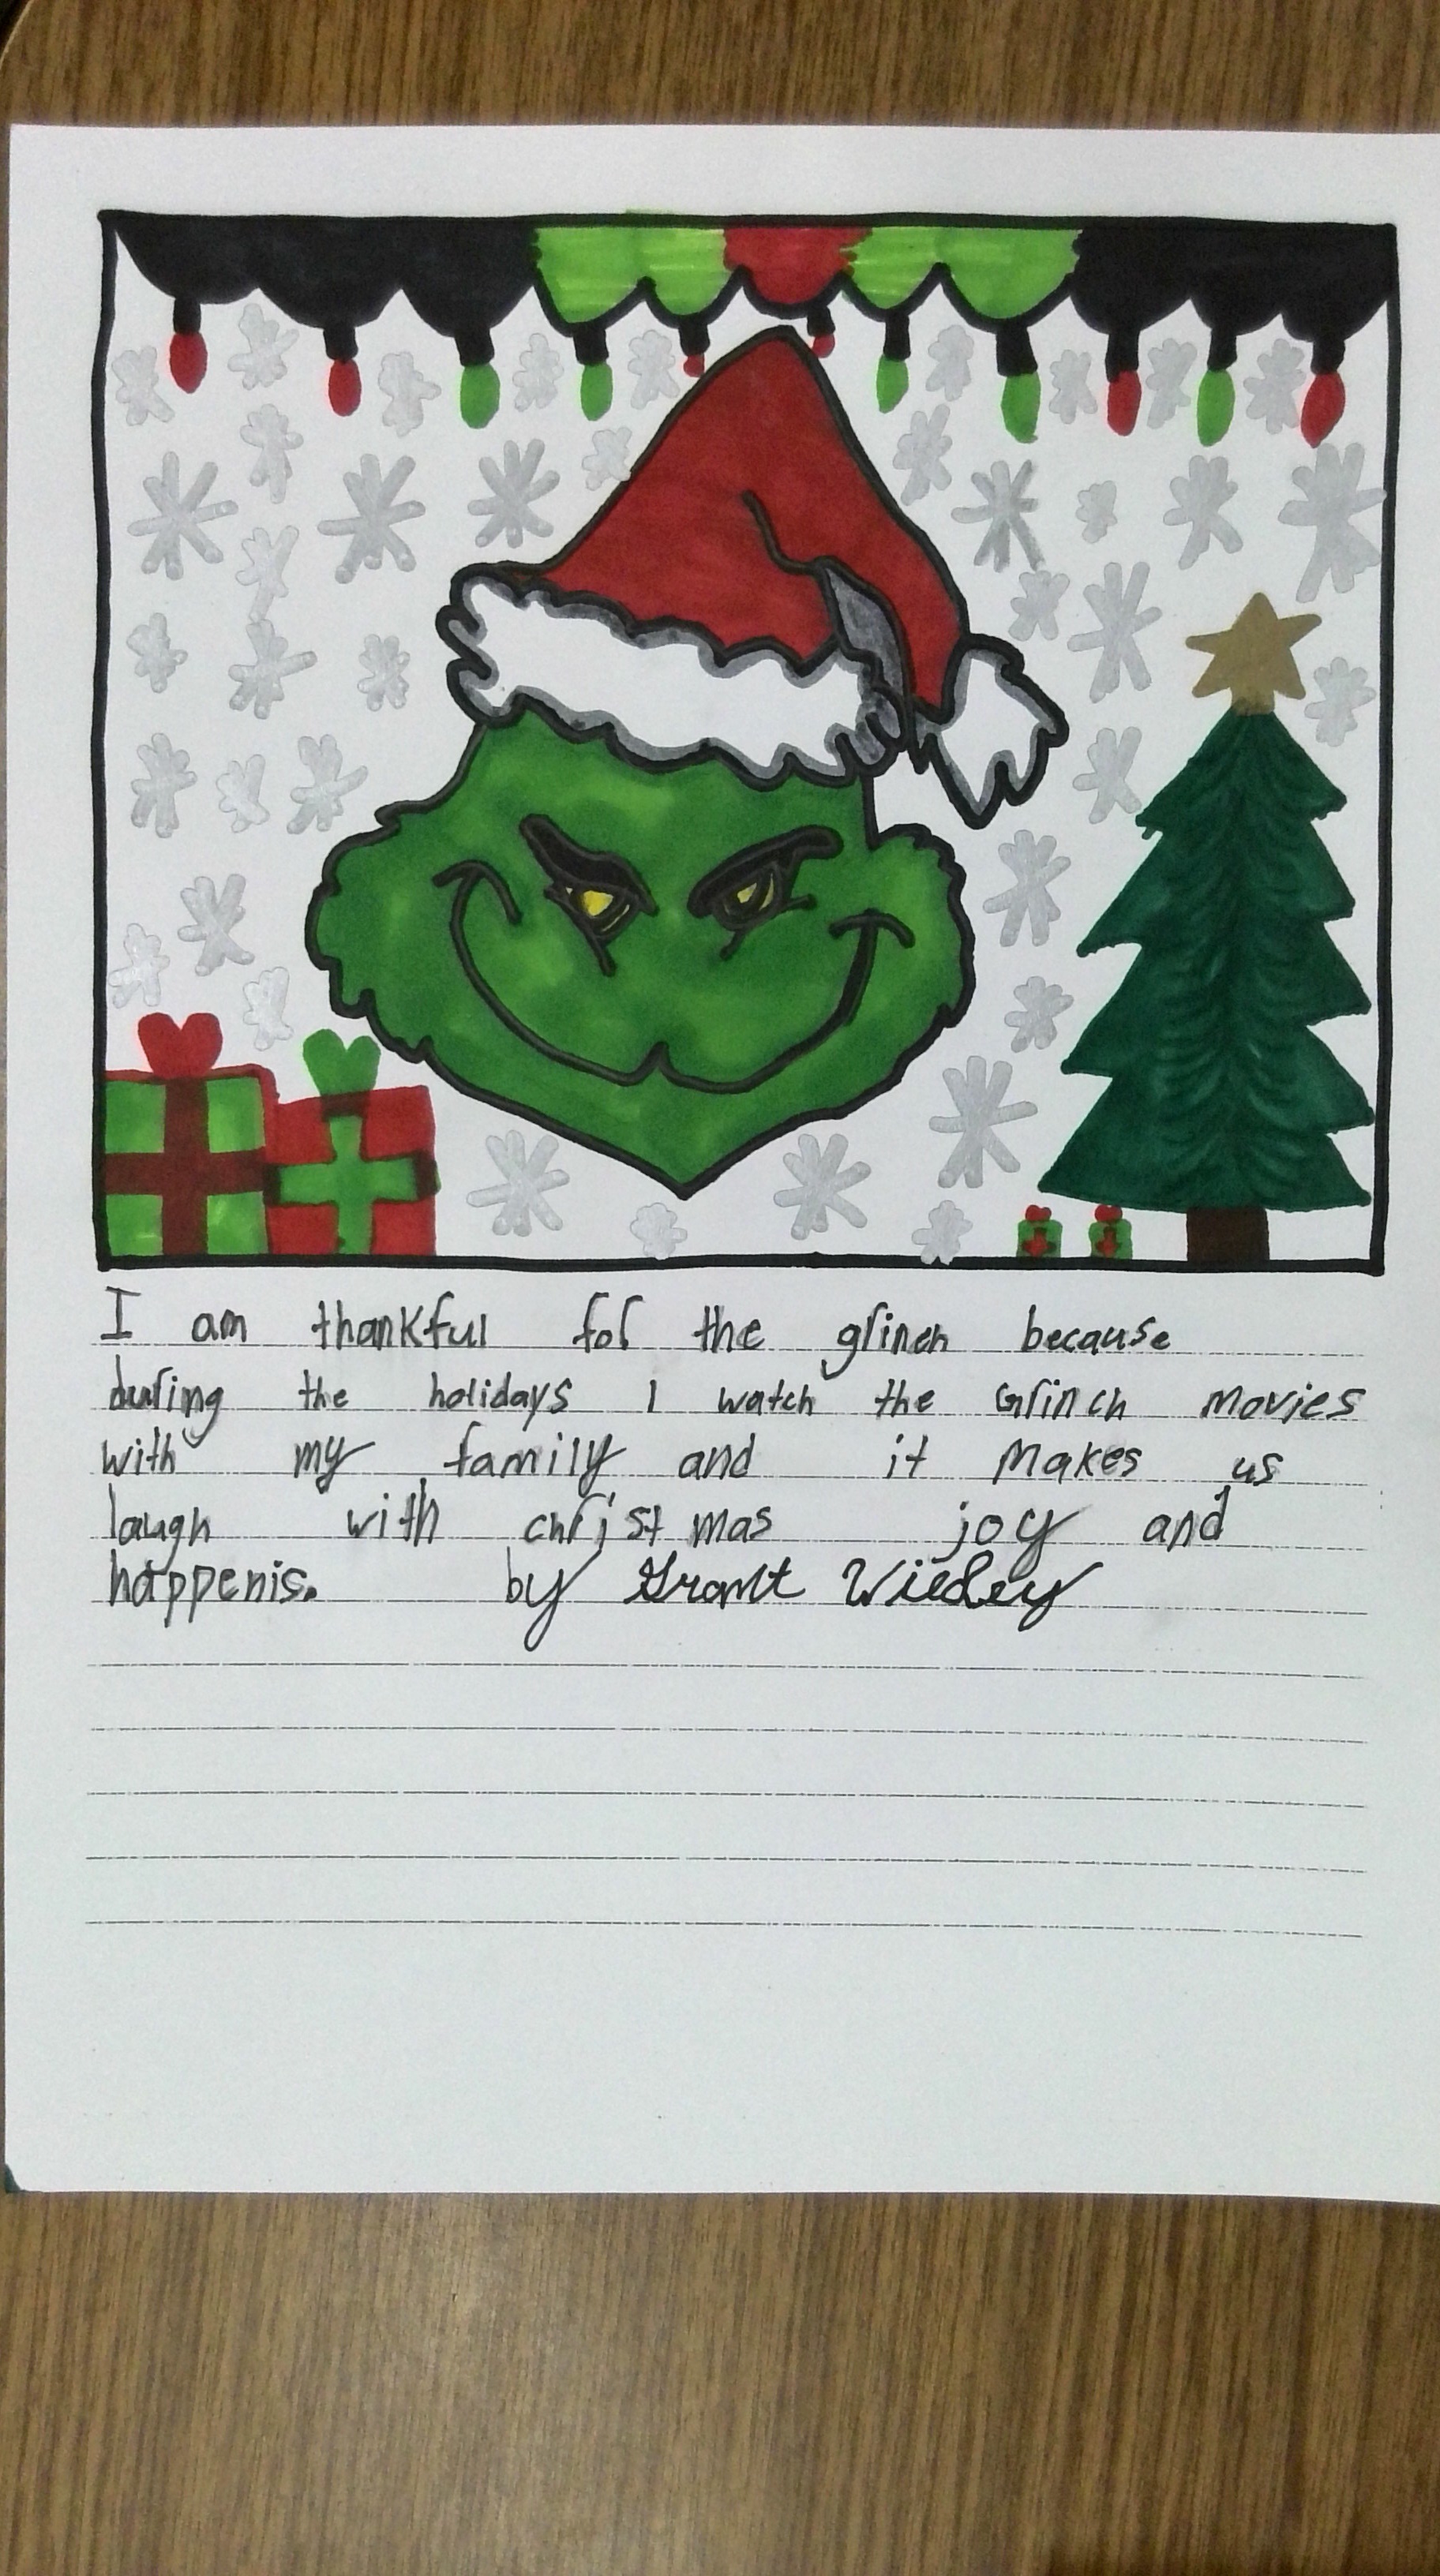 I am thankful for the grinch because
during the holidays I watch the Grinch movies
with my family and it Makes us
laugh with christmas joy and
happenis. by Grant